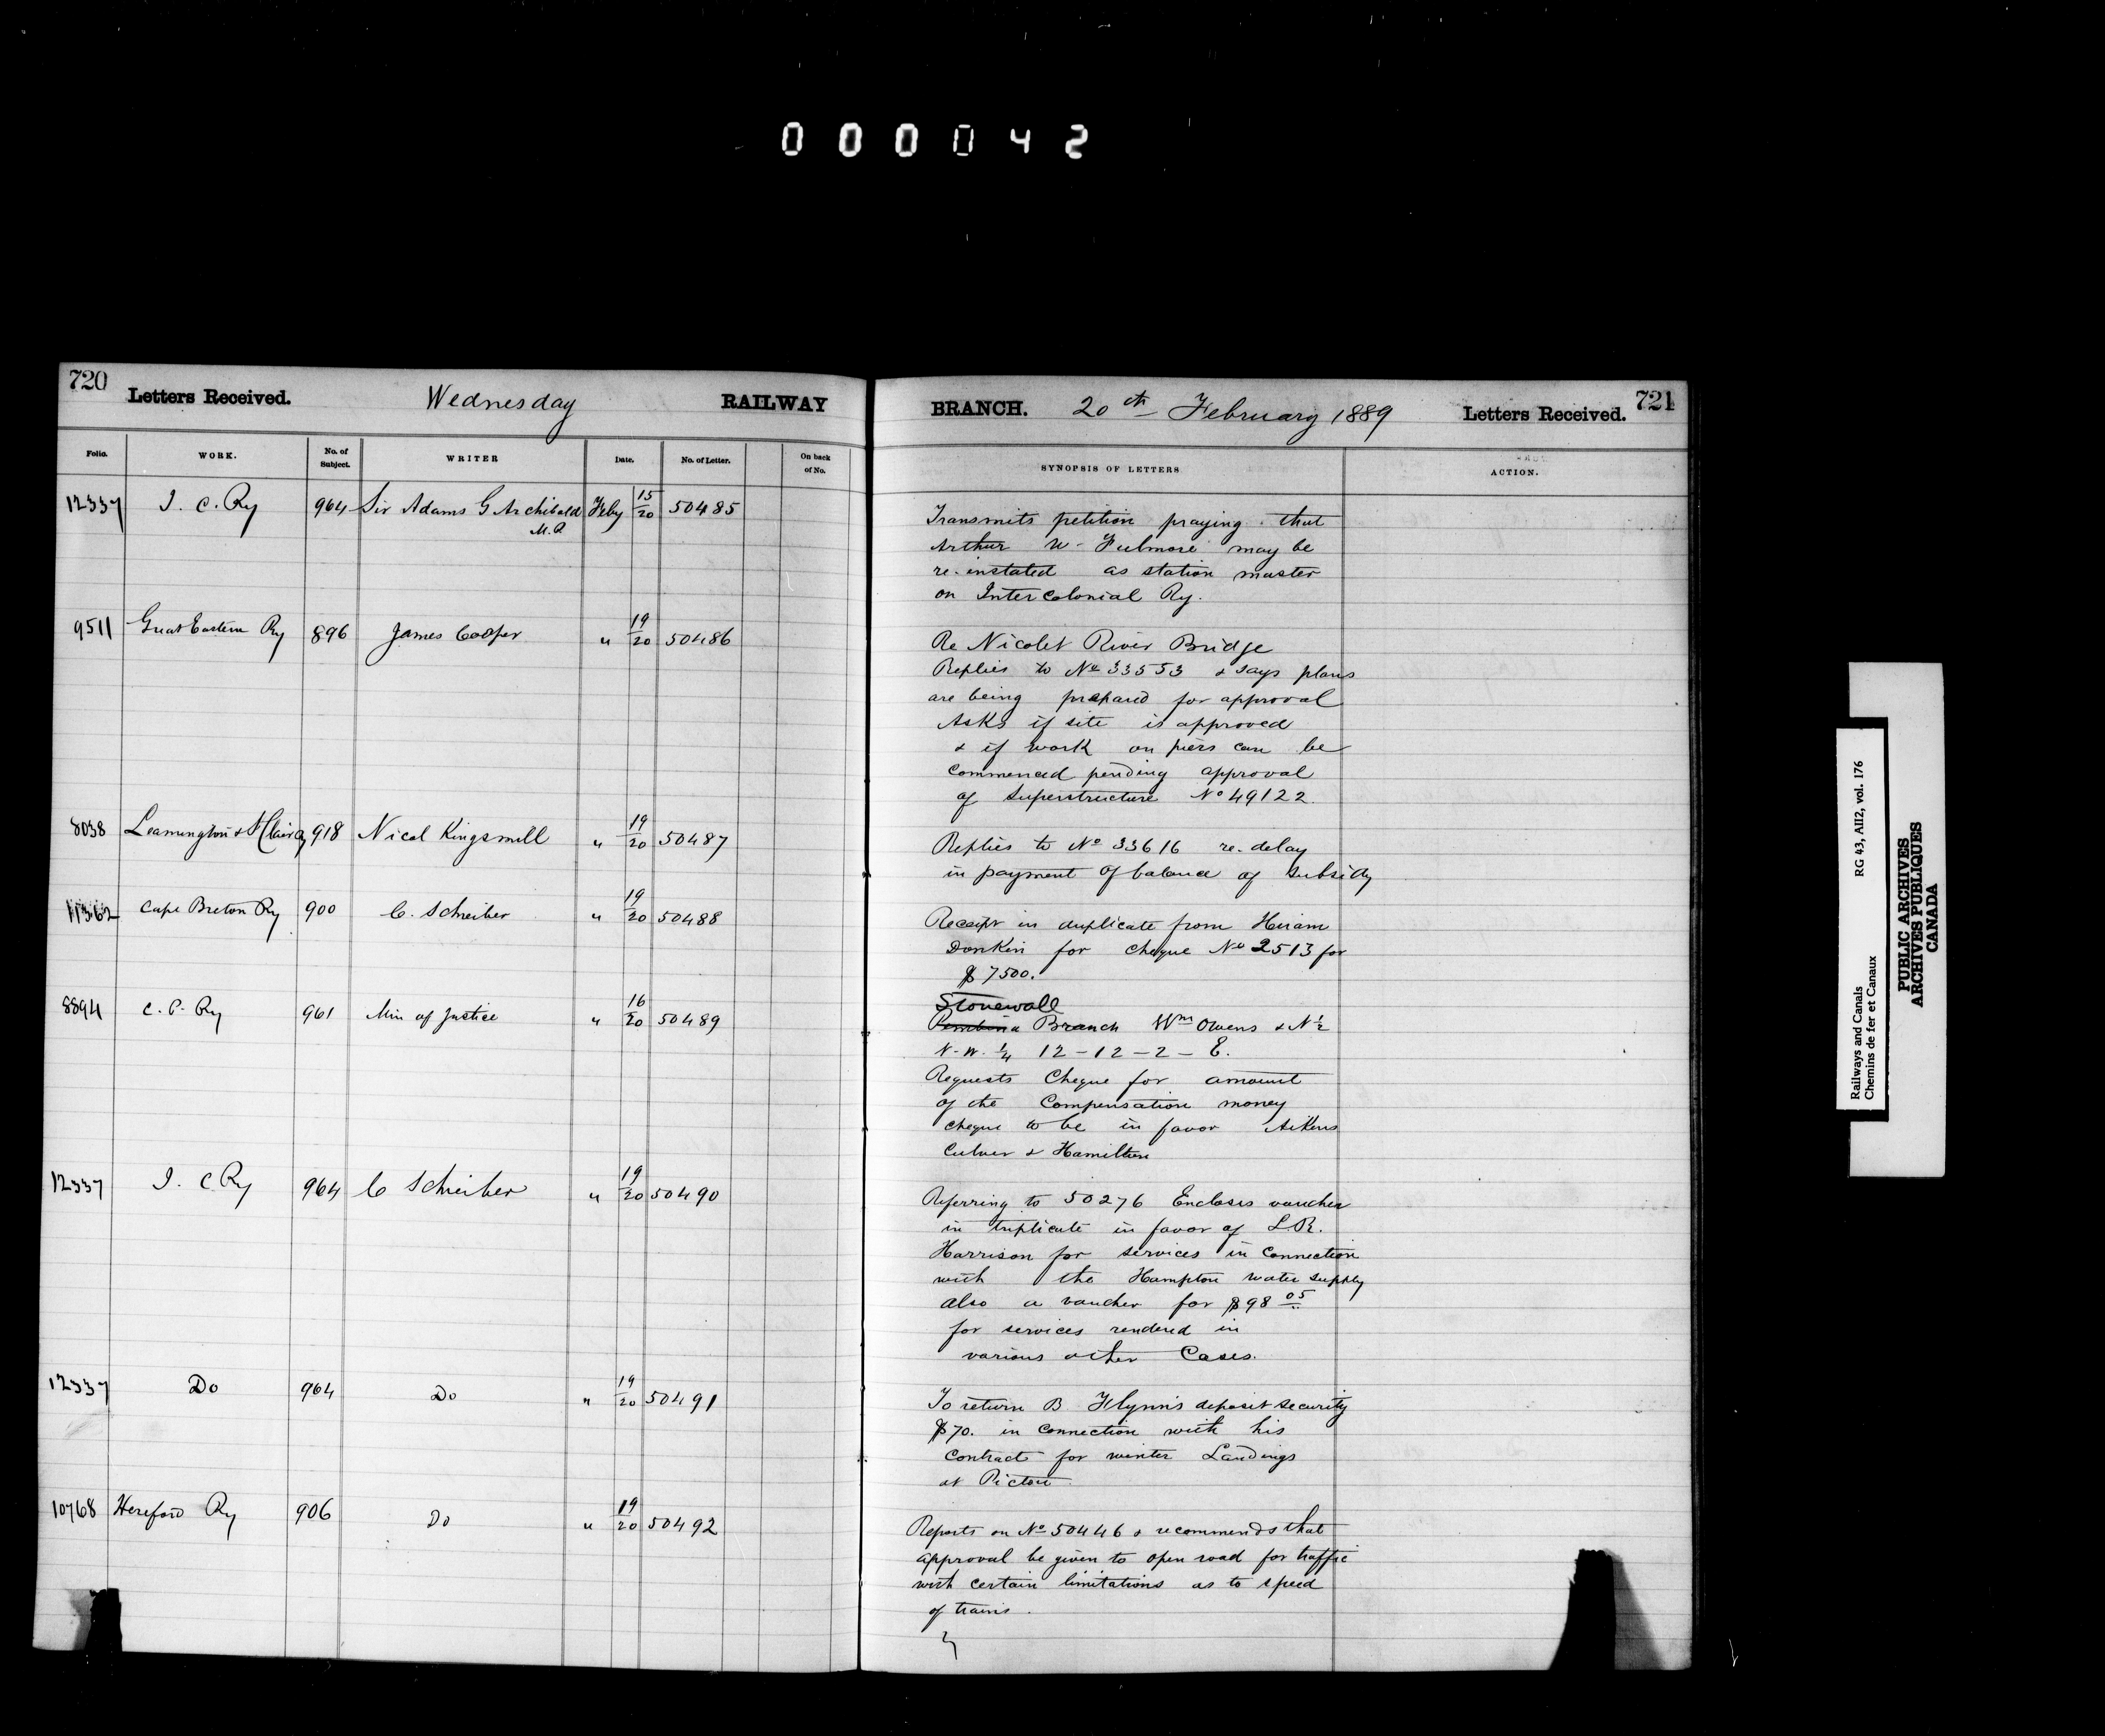 000042
720
Letters Received.
Wednesday
RAILWAY
Folio.
WORK.
No. of Subject.
WRITER
Date.
No. of Letter.
On back of No.
12337 I. C. Ry 964 Sir Adams G Archibald M.P. Feby 15/20 50485
9511 Great Eastern Ry 896 James Cooper " 19/20 50486
8038 Leamington & St Clair Ry 918 Nicol Kingsmill " 19/20 50487
11362 Cape Breton Ry 900 C. Schreiber " 19/20 50488
8894 C. P. Ry 961 Min of Justice " 16/20 50489
12337 I. C Ry 964 C Schreiber " 19/20 50490
12337 Do 964 Do " 19/20 50491
10768 Hereford Ry 906 Do " 19/20 50492
BRANCH.
20th February 1889
Letters Received.
721
SYNOPSIS OF LETTERS
ACTION.
Transmits petition praying that
Arthur W. Fulmore may be
re-instated as station master
on Intercolonial Ry.
Re Nicolet River Bridge
Replies to No 33553 & says plans
are being prepared for approval
Asks if site is approved
& if work on piers can be
commenced pending approval
of Superstructure No 49122.
Replies to No 33616 re. delay
in payment of balance of Subsidy
Receipt in duplicate from Hiram
Donkin for cheque No 2513 for
$7500.
Stonewall
Pembina Branch Wm Owens & N½
N.W. ¼ 12-12-2-E.
Requests Cheque for amount
of the Compensation money
cheque to be in favor Aikens
Culver & Hamilton
Referring to 50276 Encloses voucher
in triplicate in favor of L.R.
Harrison for services in Connection
with the Hampton water supply
also a voucher for $98.05
for services rendered in
various other Cases.
To return B Flynn's deposit security
$70. in connection with his
Contract for winter Landings
at Pictou
Reports on No 50446 & recommends that
approval be given to open road for traffic
with certain limitations as to speed
of trains.
Railways and Canals RG 43, AII2, vol. 176
Chemins de fer et Canaux
PUBLIC ARCHIVES
ARCHIVES PUBLIQUES
CANADA